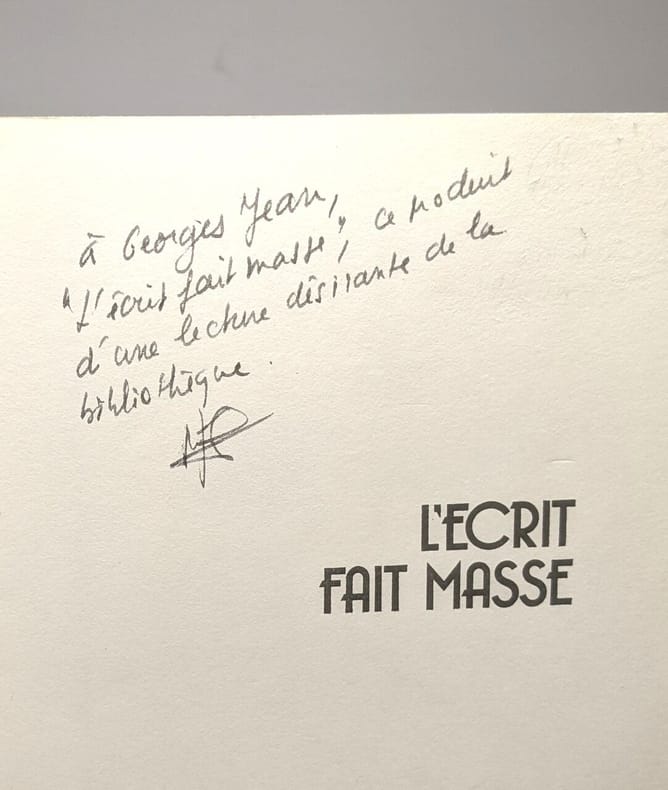 à Georges Jean,
"L'écrit fait masse", ce produit
d'une lecture désirante de la
bibliothèque.
L'ECRIT
FAIT MASSE